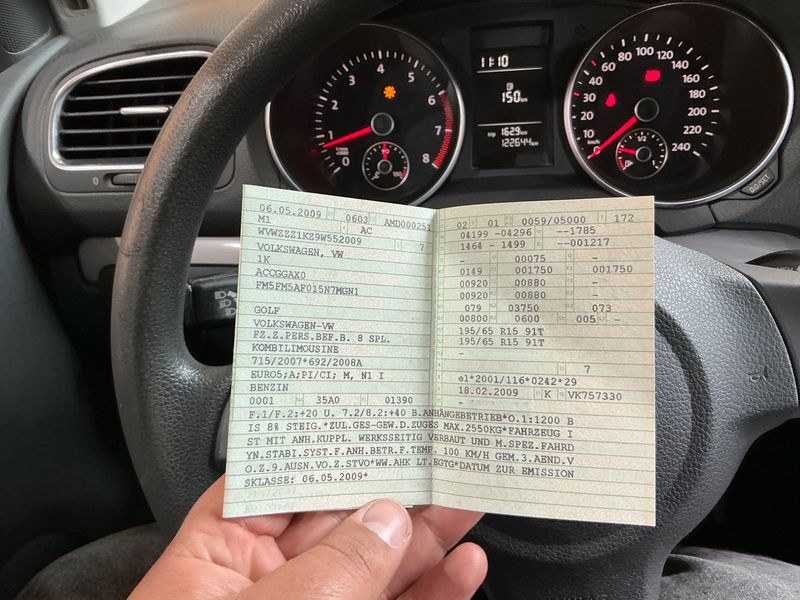 11:10
150 km
trip 162.9
122644 km
1 2 3 4 5 6 7 8
0
20 40 60 80 100 120 140 160 180 200 220 240
0 10 30
1/2
0.0/SET
06.05.2009 0603 AMD000251
M1 AC
WVWZZZ1KZ9W552009 7
VOLKSWAGEN, VW
1K
ACCGGAX0
FM5FM5AF015N7MGN1
GOLF
VOLKSWAGEN-VW
FZ.Z.PERS.BEF.B. 8 SPL.
KOMBILIMOUSINE
715/2007*692/2008A
EURO5;A;PI/CI; M, N1 I
BENZIN
0001 35A0 01390
02 01 0059/05000 172
04199 -04296 --1785
1464 - 1499 --001217
- 00075 - -
0149 001750 001750
00920 00880 -
00920 00880 -
079 03750 073
00800 0600 005 -
195/65 R15 91T
195/65 R15 91T
-
7
e1*2001/116*0242*29
18.02.2009 K VK757330
F.1/F.2:+20 U. 7.2/8.2:+40 B.ANHÄNGEBETRIEB*O.1:1200 B
IS 8% STEIG.*ZUL.GES-GEW.D.ZUGES MAX.2550KG*FAHRZEUG I
ST MIT ANH.KUPPL. WERKSSEITIG VERBAUT UND M.SPEZ.FAHRD
YN.STABI.SYST.F.ANH.BETR.F.TEMP. 100 KM/H GEM.3.AEND.V
O.Z.9.AUSN.VO.Z.STVO*WW.AHK LT.EGTG*DATUM ZUR EMISSION
SKLASSE: 06.05.2009*